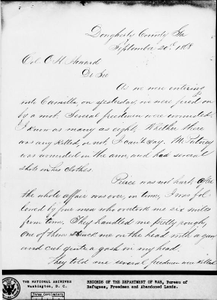 Dougherty County Ga
September 20th 1868
Col. O. H. Howard
Dr Sir
As we were entering
into Camilla, on yesterday, we were fired on
by a mob. Several freedmen were wounded.
I know as many as eight. Whether there
are any killed, or not, I can't say. Mr
was wounded in the arm, and had several
shots in his clothes.
Pierce was not hurt.
the whole affair was over, in town, I was fol-
lowed by five men who overtook me six miles
from town. They handled me pretty rough,
One of them struck me on the head with a gun
and cut quite a gash in my head.
They told me several freedmen were killed
THE NATIONAL ARCHIVES
Washington, D. C.
RECORDS OF THE DEPARTMENT OF WAR, Bureau of
Refugees, Freedmen and Abandoned Lands.